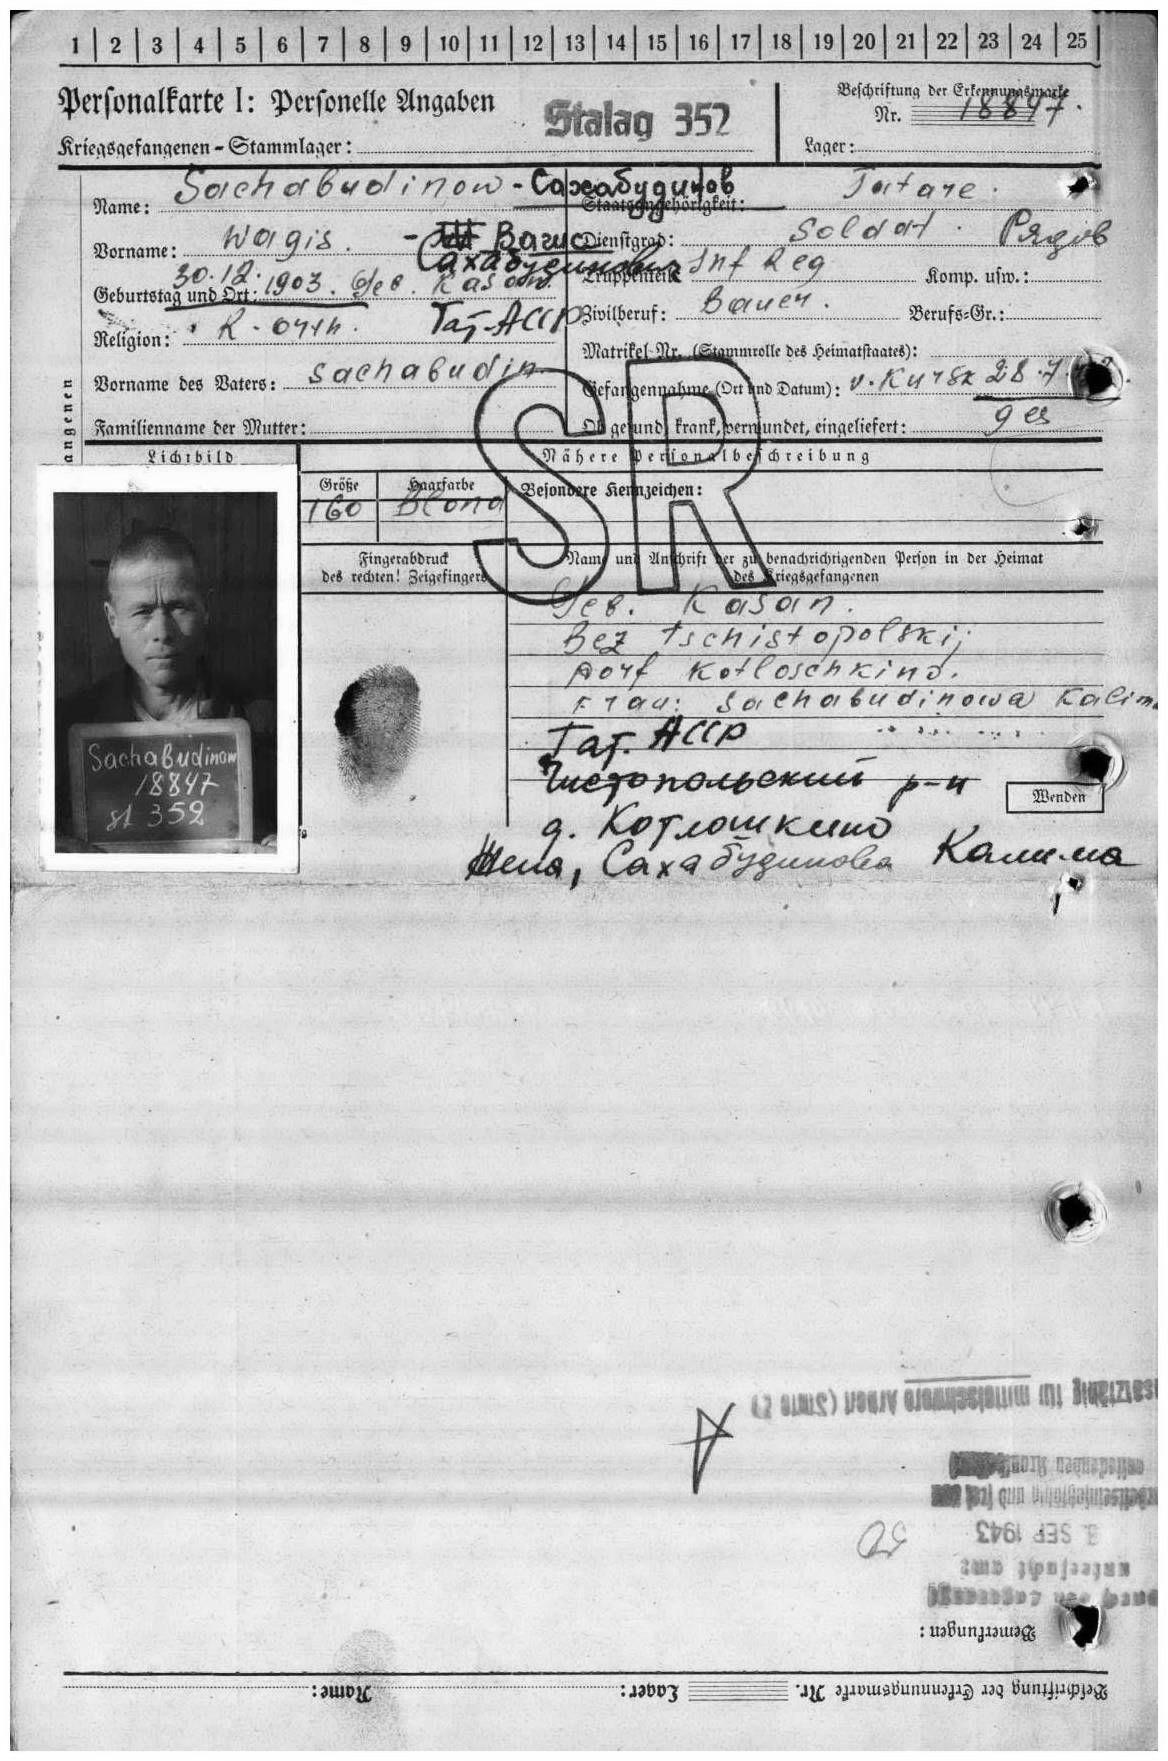 1 2 3 4 5 6 7 8 9 10 11 12 13 14 15 16 17 18 19 20 21 22 23 24 25
Personalkarte I: Personelle Angaben
Stalag 352
Beschriftung der Erkennungsmarke
Nr. 18847.
Kriegsgefangenen-Stammlager:
Lager:
Name: Sachabudinow - Сахабудинов
Staatsangehörigkeit: Tatare.
Vorname: Wagis. - Вагис
Dienstgrad: Soldat. Рядов
Сахабудинович
Truppenteil: Inf Reg Komp. usw.:
Geburtstag und Ort: 30.12.1903. Geb. Kasan.
Zivilberuf: Bauer. Berufs-Gr.:
Religion: R-orth. Тат-АССР
Matrikel Nr. (Stammrolle des Heimatstaates):
Vorname des Vaters: Sachabudin
Gefangennahme (Ort und Datum): v. Kursk 28.7.
Familienname der Mutter:
Ob gesund, krank, verwundet, eingeliefert: ges
SR
angenen
Lichtbild
Nähere Personalbeschreibung
Größe Haarfarbe Besondere Kennzeichen:
160 Blond
Fingerabdruck
des rechten! Zeigefingers
Name und Anschrift der zu benachrichtigenden Person in der Heimat
des Kriegsgefangenen
Geb. Kasan.
Bez tschistopolskij
Dorf Kotloschkino.
Frau: Sachabudinowa Kalima
Тат. АССР
Чистопольский р-н
д. Котлошкино
Жена, Сахабудинова Калима
Wenden
Sachabudinow
18847
st 352
Beschriftung der Erkennungsmarke Nr. Lager: Name:
Bemerkungen:
untersucht am:
3. SEP 1943
für mittelschwere Arbeit (Stufe 2)